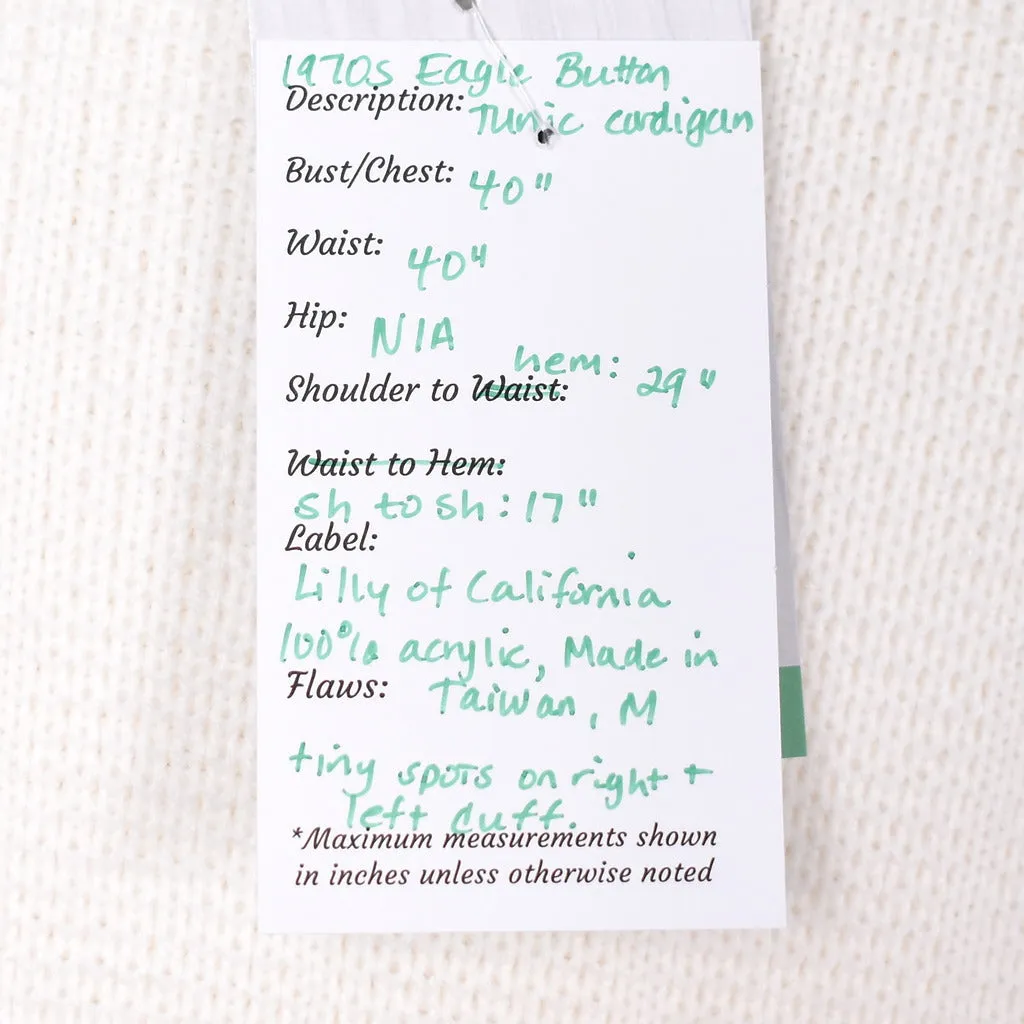 1970s Eagle Button
Description: Tunic cardigan
Bust/Chest: 40"
Waist: 40"
Hip: N/A
hem:
Shoulder to Waist: 29"
Waist to Hem:
sh to sh: 17"
Label:
Lilly of California
100% acrylic, Made in
Flaws: Taiwan, M
tiny spots on right +
left cuff.
*Maximum measurements shown
in inches unless otherwise noted